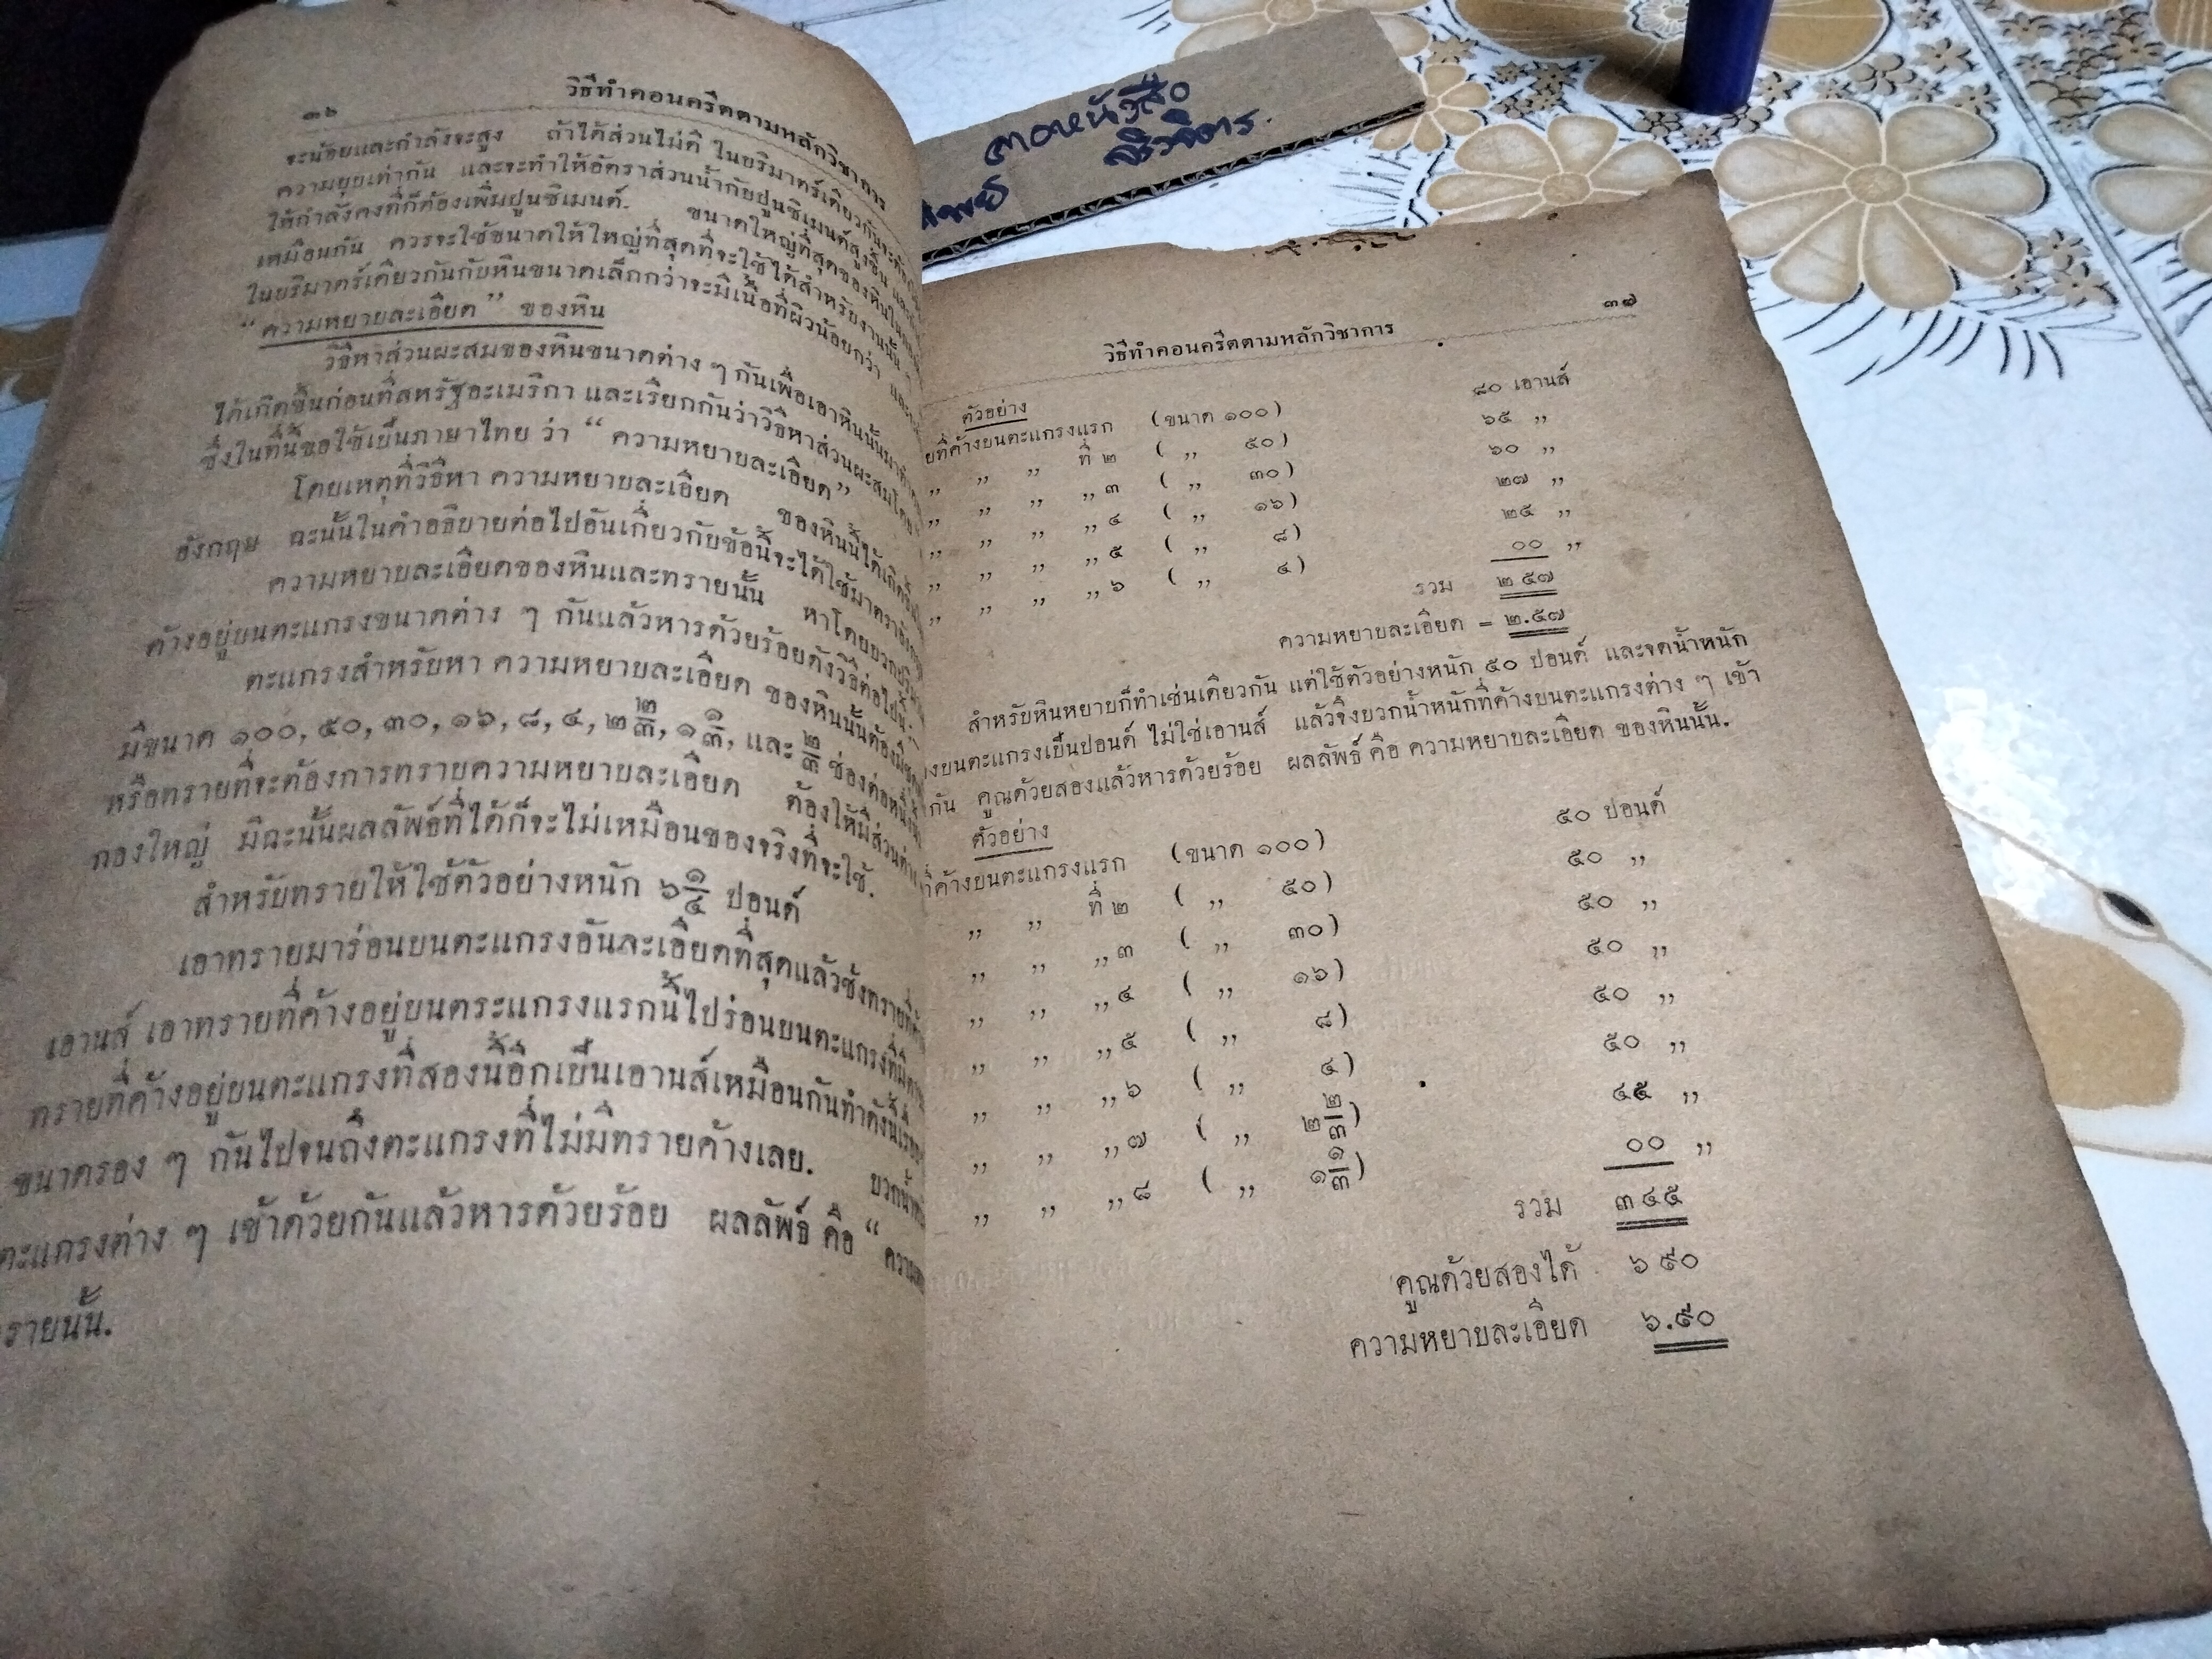 ๓๖
วิธีทำคอนครีตตามหลักวิชาการ
จะน้อยและกำลังจะสูง ถ้าได้ส่วนไม่ดี ในบริมาตร์เดียวกันจะต้อง
ความยุบเท่ากัน และจะทำให้อัตราส่วนน้ำกับปูนซิเมนต์สูงขึ้น
ให้กำลังคงที่ก็ต้องเพิ่มปูนซิเมนต์. ขนาดใหญ่ที่สุดของหิน
เหมือนกัน ควรจะใช้ขนาดให้ใหญ่ที่สุดที่จะใช้ได้สำหรับงานนั้น ๆ
ในบริมาตร์เดียวกันกับหินขนาดเล็กกว่าจะมีเนื้อที่ผิวน้อยกว่า และ
“ความหยาบละเอียด” ของหิน
วิธีหาส่วนผะสมของหินขนาดต่าง ๆ กันเพื่อเอาหินนั้นมา
ได้เกิดขึ้นก่อนที่สหรัฐอะเมริกา และเรียกกันว่าวิธีหาส่วนผะสมโดย
ซึ่งในที่นี้ขอใช้เป็นภาษาไทย ว่า “ความหยาบละเอียด”
โดยเหตุที่วิธีหา ความหยาบละเอียด ของหินนี้ได้เกิดขึ้น
อังกฤษ ฉะนั้นในคำอธิบายต่อไปอันเกี่ยวกับข้อนี้จะได้ใช้มาตราอังกฤษ
ความหยาบละเอียดของหินและทรายนั้น หาโดยบวก
ค้างอยู่บนตะแกรงขนาดต่าง ๆ กันแล้วหารด้วยร้อยดังวิธีต่อไปนี้.
ตะแกรงสำหรับหา ความหยาบละเอียด ของหินนั้นต้องมี
มีขนาด ๑๐๐, ๕๐, ๓๐, ๑๖, ๘, ๔, ๒ ๒/๓, ๑ ๑/๓, และ ๒/๓ ช่องต่อหนึ่งนิ้ว
หรือทรายที่จะต้องการทราบความหยาบละเอียด ต้องให้มีส่วน
กองใหญ่ มิฉะนั้นผลลัพธ์ที่ได้ก็จะไม่เหมือนของจริงที่จะใช้.
สำหรับทรายให้ใช้ตัวอย่างหนัก ๖ ๑/๔ ปอนด์
เอาทรายมาร่อนบนตะแกรงอันละเอียดที่สุดแล้วชั่งทรายที่ค้าง
เอานส์ เอาทรายที่ค้างอยู่บนตระแกรงแรกนี้ไปร่อนบนตะแกรงที่มี
ทรายที่ค้างอยู่บนตะแกรงที่สองนี้อีกเป็นเอานส์เหมือนกันทำดังนี้
ขนาดรอง ๆ กันไปจนถึงตะแกรงที่ไม่มีทรายค้างเลย. บวกน้ำหนัก
ตะแกรงต่าง ๆ เข้าด้วยกันแล้วหารด้วยร้อย ผลลัพธ์ คือ “
ทรายนั้น.
๓๐หนังสือ
๓๗
วิธีทำคอนครีตตามหลักวิชาการ
ตัวอย่าง
ที่ค้างบนตะแกรงแรก (ขนาด ๑๐๐) ๘๐ เอานส์
„ „ „ ที่ ๒ ( „ ๕๐) ๖๕ „
„ „ „ „ ๓ ( „ ๓๐) ๖๐ „
„ „ „ „ ๔ ( „ ๑๖) ๒๗ „
„ „ „ „ ๕ ( „ ๘) ๒๕ „
„ „ „ „ ๖ ( „ ๔) ๐๐ „
รวม ๒๕๗
ความหยาบละเอียด = ๒.๕๗
สำหรับหินหยาบก็ทำเช่นเดียวกัน แต่ใช้ตัวอย่างหนัก ๕๐ ปอนด์ และจดน้ำหนัก
บนตะแกรงเป็นปอนด์ ไม่ใช่เอานส์ แล้วจึงบวกน้ำหนักที่ค้างบนตะแกรงต่าง ๆ เข้า
กัน คูณด้วยสองแล้วหารด้วยร้อย ผลลัพธ์ คือ ความหยาบละเอียด ของหินนั้น.
ตัวอย่าง
ที่ค้างบนตะแกรงแรก (ขนาด ๑๐๐) ๕๐ ปอนด์
„ „ ที่ ๒ ( „ ๕๐) ๕๐ „
„ „ „ ๓ ( „ ๓๐) ๕๐ „
„ „ „ ๔ ( „ ๑๖) ๕๐ „
„ „ „ ๕ ( „ ๘) ๕๐ „
„ „ „ ๖ ( „ ๔) ๕๐ „
„ „ „ ๗ ( „ ๒ ๒/๓) ๔๕ „
„ „ „ ๘ ( „ ๑ ๑/๓) ๐๐ „
รวม ๓๔๕
คูณด้วยสองได้ ๖๙๐
ความหยาบละเอียด ๖.๙๐